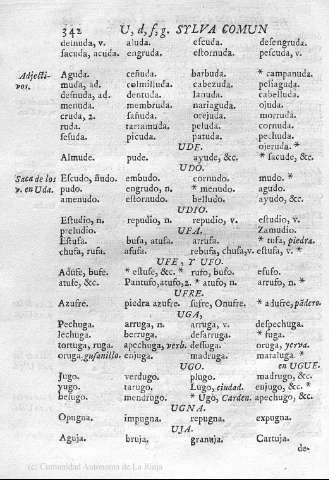 342 U, d, f, g. SYLVA COMUN
desnuda, v. aluda. escuda. desengruda.
sacuda, acuda. engruda. estornuda. pescuda, v.
Adjecti- Aguda. ceñuda. barbuda. * campanuda.
vos. muda, ad. colmilluda. cabezuda. peliaguda.
desnuda, ad. dentuda. lanuda. cabelluda.
menuda. membruda. nariaguda. ojuda.
cruda, 2. sañuda. orejuda. morruda.
ruda. tartamuda. peluda. cornuda.
sesuda. picuda. patuda. pechuda.
UDE. ojeruda. *
Almude. pude. ayude, &c. * sacude, &c.
UDO.
Saca de los Escudo, ñudo. embudo. cornudo. mudo. *
v. en Uda. pudo. engrudo, n. * menudo. agudo.
amenudo. estornudo. belludo. ayudo, &c.
UDIO.
Estudio, n. repudio, n. repudio, v. estudio, v.
preludio. UFA. Zamudio.
Estufa. bufa, atufa. arrufa. * tufa, piedra.
chufa, rufa. afufa. rebufa, chufa,v. estufa, v. *
UFE, Y UFO.
Adufe, bufe. * estufe, &c. * rufo, bufo. esufo.
atufe, &c. Pantufo, atufo, 2. * atufo, n. arrufo, n. *
UFRE.
Azufre. piedra azufre. sufre, Onufre. * adufre, pädero.
UGA,
Pechuga. arruga, n. arruga, v. despechuga.
lechuga. berruga. desarruga. * fuga.
tortuga, ruga. apechuga, verb. dessuga. oruga, yerva.
oruga, gusanillo. enjuga. madruga. mataluga. *
UGO. en UGUE.
Jugo. verdugo. plugo. madrugo, &c.
yugo. tarugo. Lugo, ciudad. enjugo, &c. *
besugo. mendrugo. * Ugo, Carden. apechugo, &c.
UGNA.
Opugna. impugna. repugna. expugna.
UJA.
Aguja. bruja. granuja. Cartuja.
de-
(c) Comunidad Autónoma de La Rioja